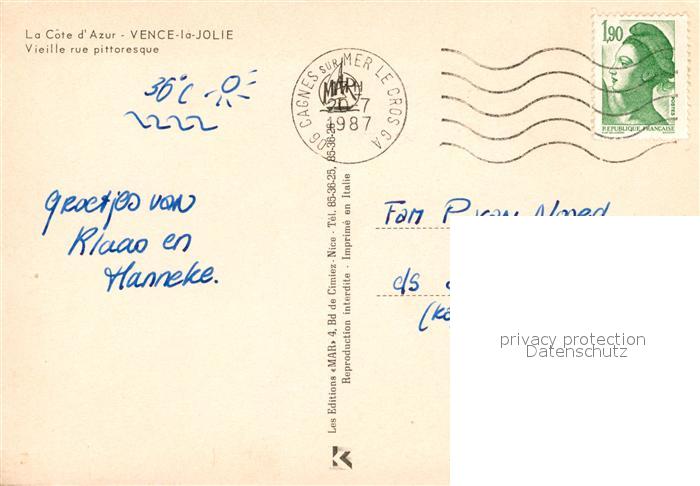 La Côte d'Azur - VENCE-la-JOLIE
Vieille rue pittoresque
36°C
Groetjes van
Klaas en
Hanneke.
06 CAGNES sur MER LE CROS CA
MAR
20-7
1987
1,90
POSTES
REPUBLIQUE FRANÇAISE
Les Editions «MAR» 4, Bd de Cimiez - Nice - Tél. 85-36-25, 85-36-26
Reproduction interdite - Imprimé en Italie
K
Fam P. van
c/s
privacy protection
Datenschutz